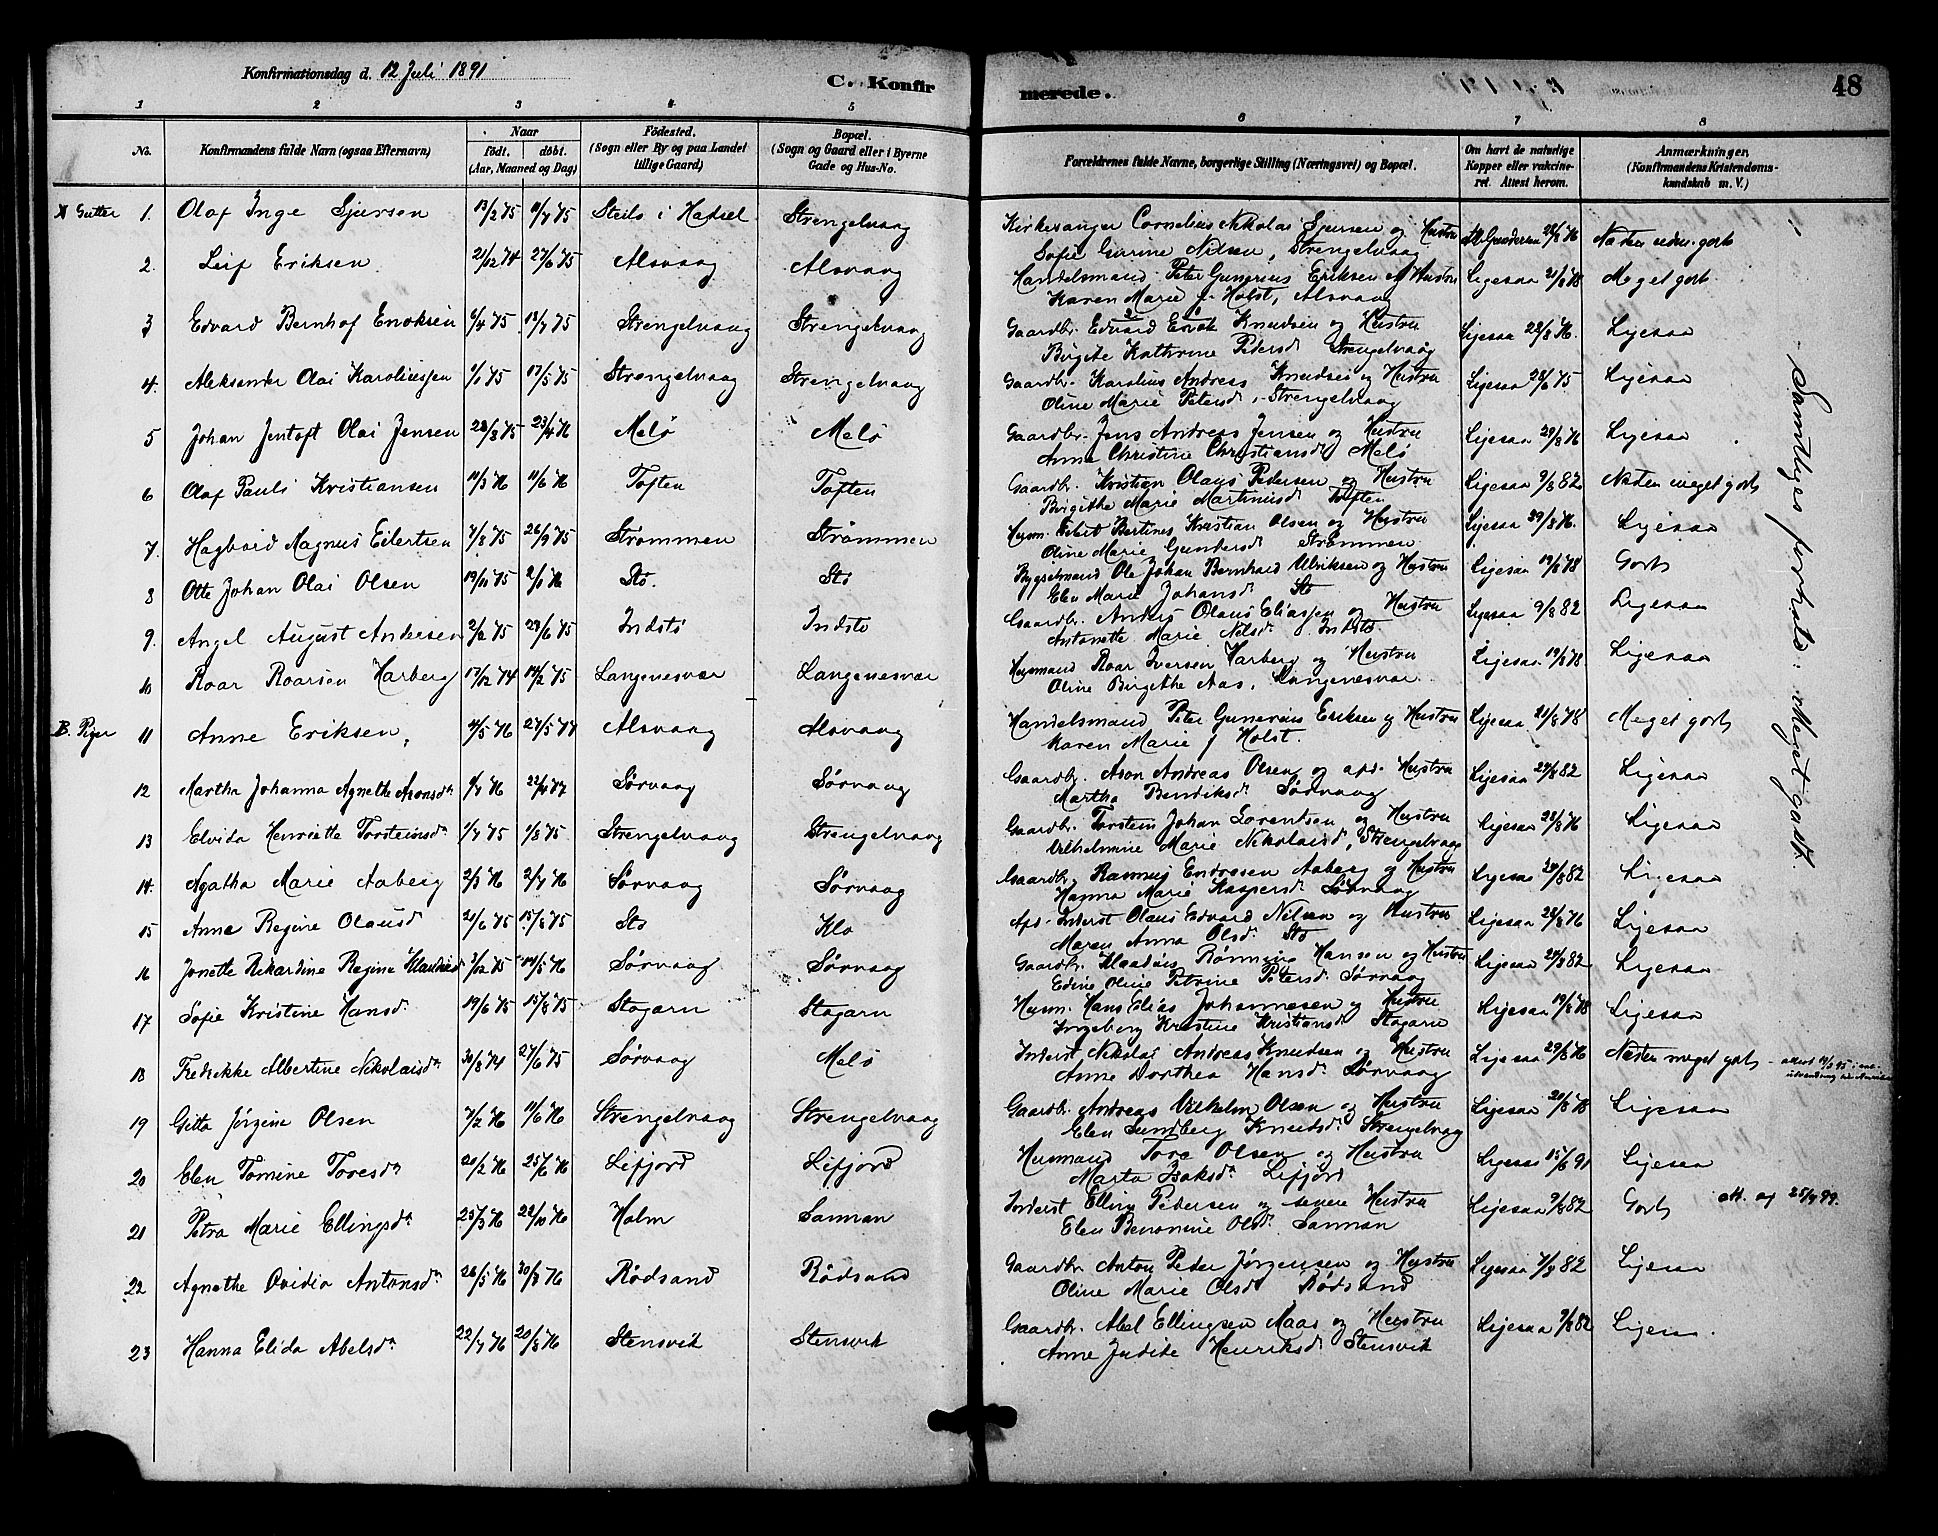 Konfirmationsdag d. 12 Juli 1891
C. Konfirmerede.
48
1 2 3 4 5 6 7 8
No. Konfirmandens fulde Navn (ogsaa Efternavn) Naar født. døbt. (Aar, Maaned og Dag) Fødested. (Sogn eller By og paa Landet tillige Gaard) Bopæl. (Sogn og Gaard eller i Byerne Gade og Hus-No. Forældrenes fulde Navne, borgerlige Stilling (Næringsvei) og Bopæl. Om havt de naturlige Kopper eller vakcineret. Attest herom. Anmærkninger, (Konfirmandens Kristendomskundskab m. V.)
A Gutter 1. Olaf Inge Sjursen 13/2 75 11/7 75 Steilo i Hadsel Strengelvaag Kirkesanger Cornelius Nikolai Sjursen og Hustru Gundersen 28/8 76
Sofie Gurine Nilsen, Strengelvaag
2. Leif Eriksen 21/12 74 27/6 75 Alsvaag Alsvaag Handelsmand Peter Gunerius Eriksen og Hustru Ligesaa 21/8 78 Meget godt
Karen Marie f. Holst, Alsvaag
3 Edvard Bernhof Enoksen 6/4 75 13/7 75 Strengelvaag Strengelvaag Gaardbr. Edvard Enok Knudsen og Hustru Ligesaa 28/8 76. Ligesaa
Birgite Kathrine Petersd. Strengelvaag
4. Aleksander Olai Karoliussen 1/1 75 17/5 75 Strengelvaag Strengelvaag Gaardbr. Karolius Andreas Knudsen og Hustru Ligesaa 28/6 75 Ligesaa
Oline Marie Petersd., Strengelvaag
5 Johan Jentoft Olai Jensen 28/8 75 23/4 76 Melø Melø Gaardbr. Jens Andreas Jensen og Hustru Ligesaa 29/8 76 Ligesaa
Anne Christine Christiansd. Melø
6 Olaf Pauli Kristiansen 11/3 76 11/6 76 Toften Toften Gaardbr. Kristian Olaus Pedersen og Hustru Ligesaa 9/8 82 Næsten meget godt
Birgithe Marie Martinusd. Toften
7. Hagbard Magnus Eilertsen 7/8 75 26/9 75 Strømmen Strømmen Husm. Eilert Bertines Kristian Olsen og Hustru Ligesaa 29/8 76. Ligesaa
Oline Marie Gundersd. Strømmen
8 Otte Johan Olai Olsen 19/10 75 2/1 76 Stø. Stø Bygselmand Ole Johan Bernhard Ulriksen og Hustru Ligesaa 19/8 78 Godt
Elen Marie Johansd. Stø
9. Angel August Andersen 2/2 75 29/6 75 Indstø Indstø Gaardbr. Anders Olaus Eliassen og Hustru Ligesaa 9/8 82 Ligesaa
Antonette Marie Nilsd. Indstø.
10 Roar Roarsen Harberg 17/12 74 14/2 75 Langenesvær Langenesvær Husmand Roar Iversen Harberg og Hustru Ligesaa 19/8 78 Ligesaa
Oline Birgithe Aas, Langenesvær.
B. Piger 11 Anne Eriksen, 4/5 76 27/5 77 Alsvaag Alsvaag Handelsmand Peter Gunerius Eriksen og Hustru Ligesaa 21/8 78 Meget godt
Karen Marie f Holst.
12 Martha Johanna Agnethe Asonsdr. Sørvaag Sørvaag Gaardbr. Ason Andreas Olsen og afd. Hustru Ligesaa 29/8 82 Ligesaa
Martha Bendiksd. Sørvaag
13 Elvida Henriette Torsteinsdr. 1/7 75 1/8 75 Strengelvaag Strengelvaag Gaardbr. Torstein Johan Lorentsen og Hustru Ligesaa 28/8 76 Ligesaa
Vilhelmine Marie Nikolaisd., Strengelvaag
14. Agatha Marie Aaberg 2/3 76 2/7 76 Sørvaag Sørvaag Gaardbr. Rasmus Endresen Aaberg og Hustru Ligesaa 29/8 82 Ligesaa
Hanna Marie Kaspersd. Sørvaag
15 Anne Regine Olausd 21/6 75 15/8 75 Stø Klo Afd. Inderst Olaus Edvard Nilsen og Hustru Ligesaa 28/8 76 Ligesaa
Maren Anna Olsd. Stø
16 Jonette Rikardine Regine Klaudiusd 3/12 75 14/5 76 Sørvaag Sørvaag Gaardbr. Klaudius Rønning Hansen og Hustru Ligesaa 29/8 82 Ligesaa
Edine Oline Petrine Petersd. Sørvaag
17 Sofie Kristine Hansd. 19/6 75 15/8 75 Støgarn Støgarn Husm. Hans Elias Johannesen og Hustru Ligesaa 19/8 78 Ligesaa
Ingeborg Kristine Kristiansd. Støgarn
18 Fredrikke Albertine Nikolaisdr. 30/8 74 27/6 75 Sørvaag Melø Inderst Nikolai Andreas Knudsen og Hustru Ligesaa 29/8 76 Næsten meget godt -
Anne Dorthea Hansd. Sørvaag
19 Gitta Jørgine Olsen 7/2 76 11/6 76 Strengelvaag Strengelvaag Gaardbr. Andreas Vilhelm Olsen og Hustru Ligesaa 20/8 78 Ligesaa
Elen Sundberg Knudsd. Strengelvaag
20 Elen Tomine Toresdr 20/2 76 25/6 76 Lifjord Lifjord Husmand Tore Olsen og Hustru Ligesaa 15/6 91 Ligesaa
Marta Isaksdr. Lifjord
21 Petra Marie Ellingsdr. 25/3 76 22/10 76 Holm Sanman Inderst Elling Pedersen og Hustru Ligesaa 9/8 82 Godt att. og 25/4 99.
Elen Benomine Olsd. Sanman
22 Agnethe Ovidia Antonsdr. 26/5 76 30/8 76 Rødsand Rødsand Gaardbr. Anton Peder Jørgensen og Hustru Ligesaa 9/8 82 Ligesaa
Oline Marie Olsd. Rødsand
23 Hanna Elida Abelsdr. 22/7 76 20/8 76 Stensvik Stensvik Gaardbr. Abel Ellingsen Maas og Hustru Ligesaa 9/8 82 Ligesaa.
Anne Judite Henriksd. Stensvik
Samtliges forhold: Meget godt